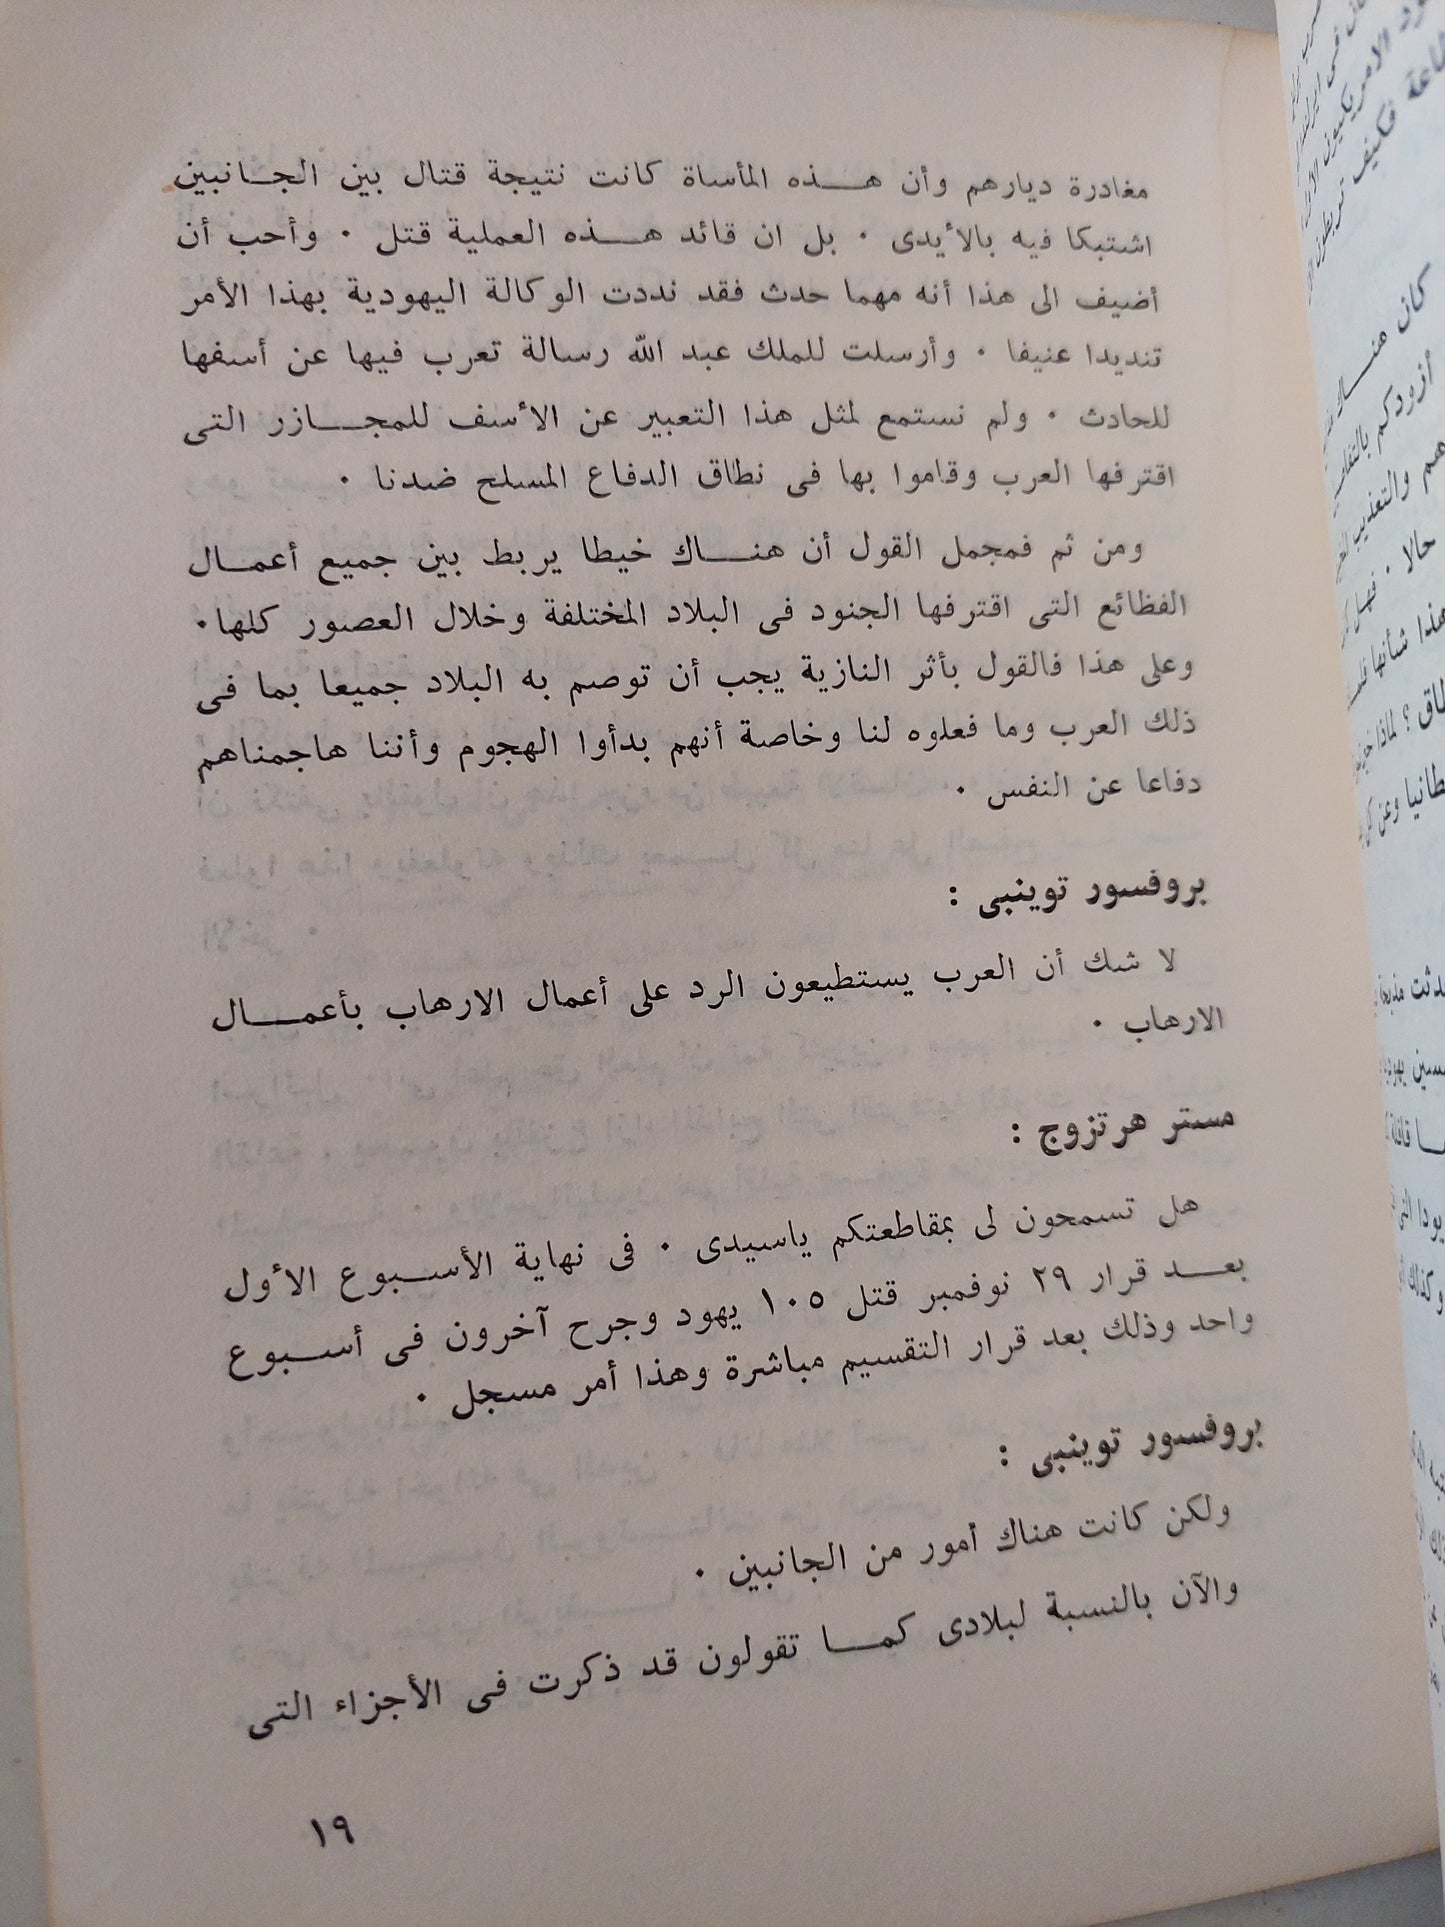 مغادرة ديارهم وأن هـــذه المأساة كانت نتيجة قتال بين الجـانبين
اشتبكا فيه بالأيدى ٠ بل ان قائد هـــذه العملية قتل ٠ وأحب أن
أضيف الى هذا أنه مهما حدث فقد نددت الوكالة اليهودية بهذا الأمر
تنديدا عنيفا ٠ وأرسلت للملك عبد الله رسالة تعرب فيها عن أسفها
للحادث ٠ ولم نستمع لمثل هذا التعبير عن الأسف للمجـــازر التى
اقترفها العرب وقاموا بها فى نطاق الدفاع المسلح ضدنا ٠
ومن ثم فمجمل القول أن هنـــاك خيطا يربط بين جميع أعمـال
الفظائع التى اقترفها الجنود فى البلاد المختلفة وخلال العصور كلها٠
وعلى هذا فالقول بأثر النازية يجب أن توصم به البلاد جميعا بما فى
ذلك العرب وما فعلوه لنا وخاصة أنهم بدأوا الهجوم وأننا هاجمناهم
دفاعا عن النفس ٠
بروفسور توينبى :
لا شك أن العرب يستطيعون الرد على أعمال الارهاب بأعمـــال
الارهاب ٠
مستر هرتزوج :
هل تسمحون لى بمقاطعتكم ياسيدى ٠ فى نهاية الأسـبوع الأول
بعـــد قرار ٢٩ نوفمبر قتل ١٠٥ يهود وجرح آخرون فى أسـبوع
واحد وذلك بعد قرار التقسيم مباشرة وهذا أمر مسجل ٠
بروفسور توينبى :
ولكن كانت هناك أمور من الجانبين ٠
والآن بالنسبة لبلادى كمـــا تقولون قد ذكرت فى الأجزاء التى
١٩
كان هنـــاك
أزودكم
هم والتعذيب
حالا ٠
هذا شأنها